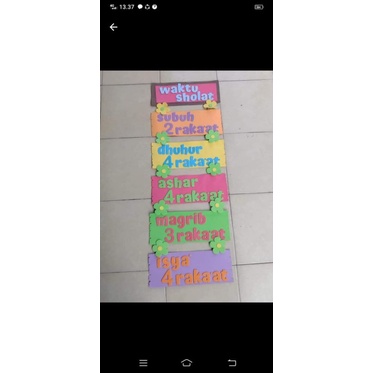 13.37
waktu
sholat
subuh
2 rakaat
dhuhur
4 rakaat
ashar
4 rakaat
magrib
3 rakaat
isya
4 rakaat